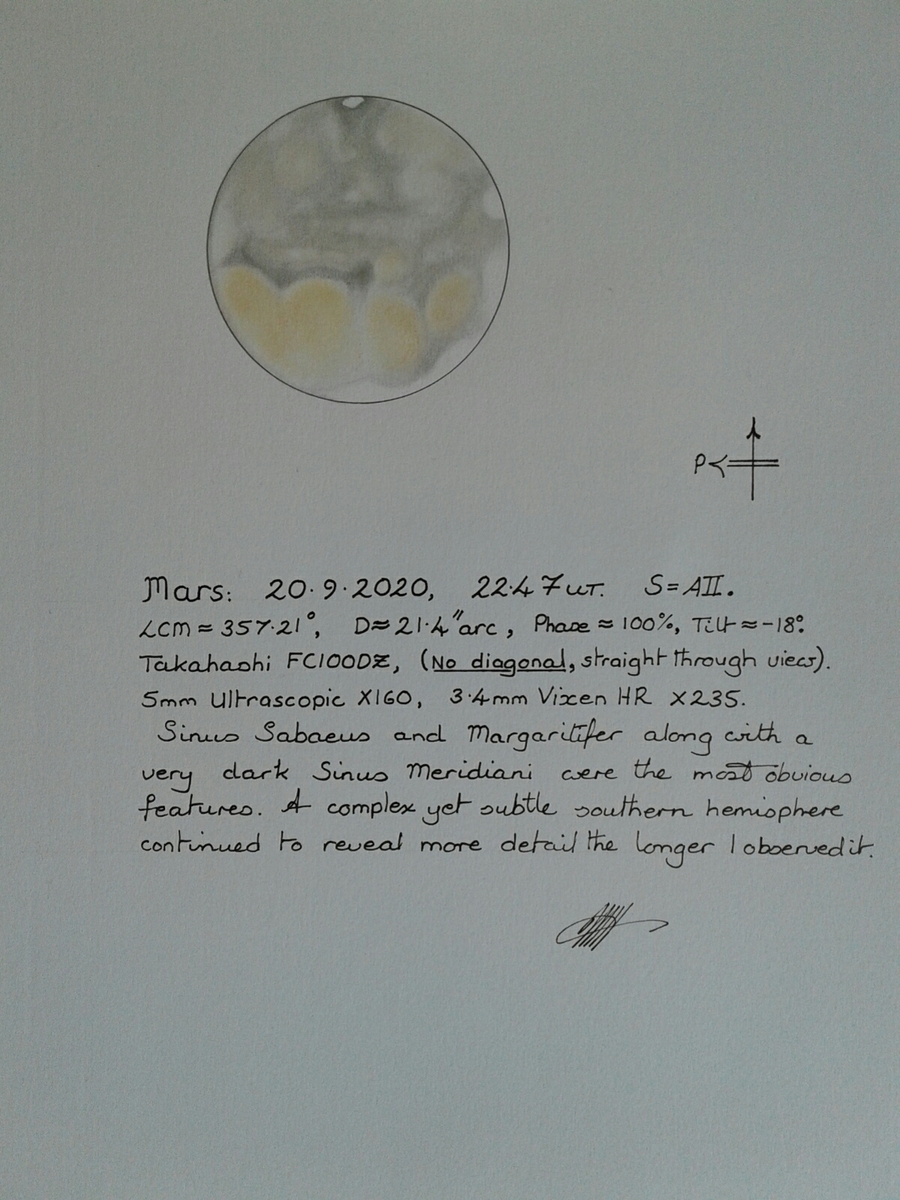 P
Mars: 20·9·2020, 22·47UT. S=AII.
LCM ≈ 357·21°, D≈21·4"arc, Phase ≈ 100%, Tilt ≈ -18°.
Takahashi FC100DZ, (No diagonal, straight through view).
5mm Ultrascopic X160, 3·4mm Vixen HR X235.
Sinus Sabaeus and Margaritifer along with a
very dark Sinus Meridiani were the most obvious
features. A complex yet subtle southern hemisphere
continued to reveal more detail the longer I observed it.